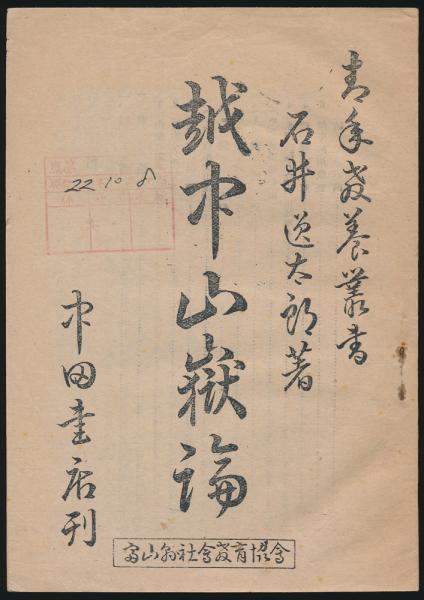 青年教養叢書
石井逸太郎著
越中山嶽論
22 10 8
中田書店刊
富山縣社會教育協會